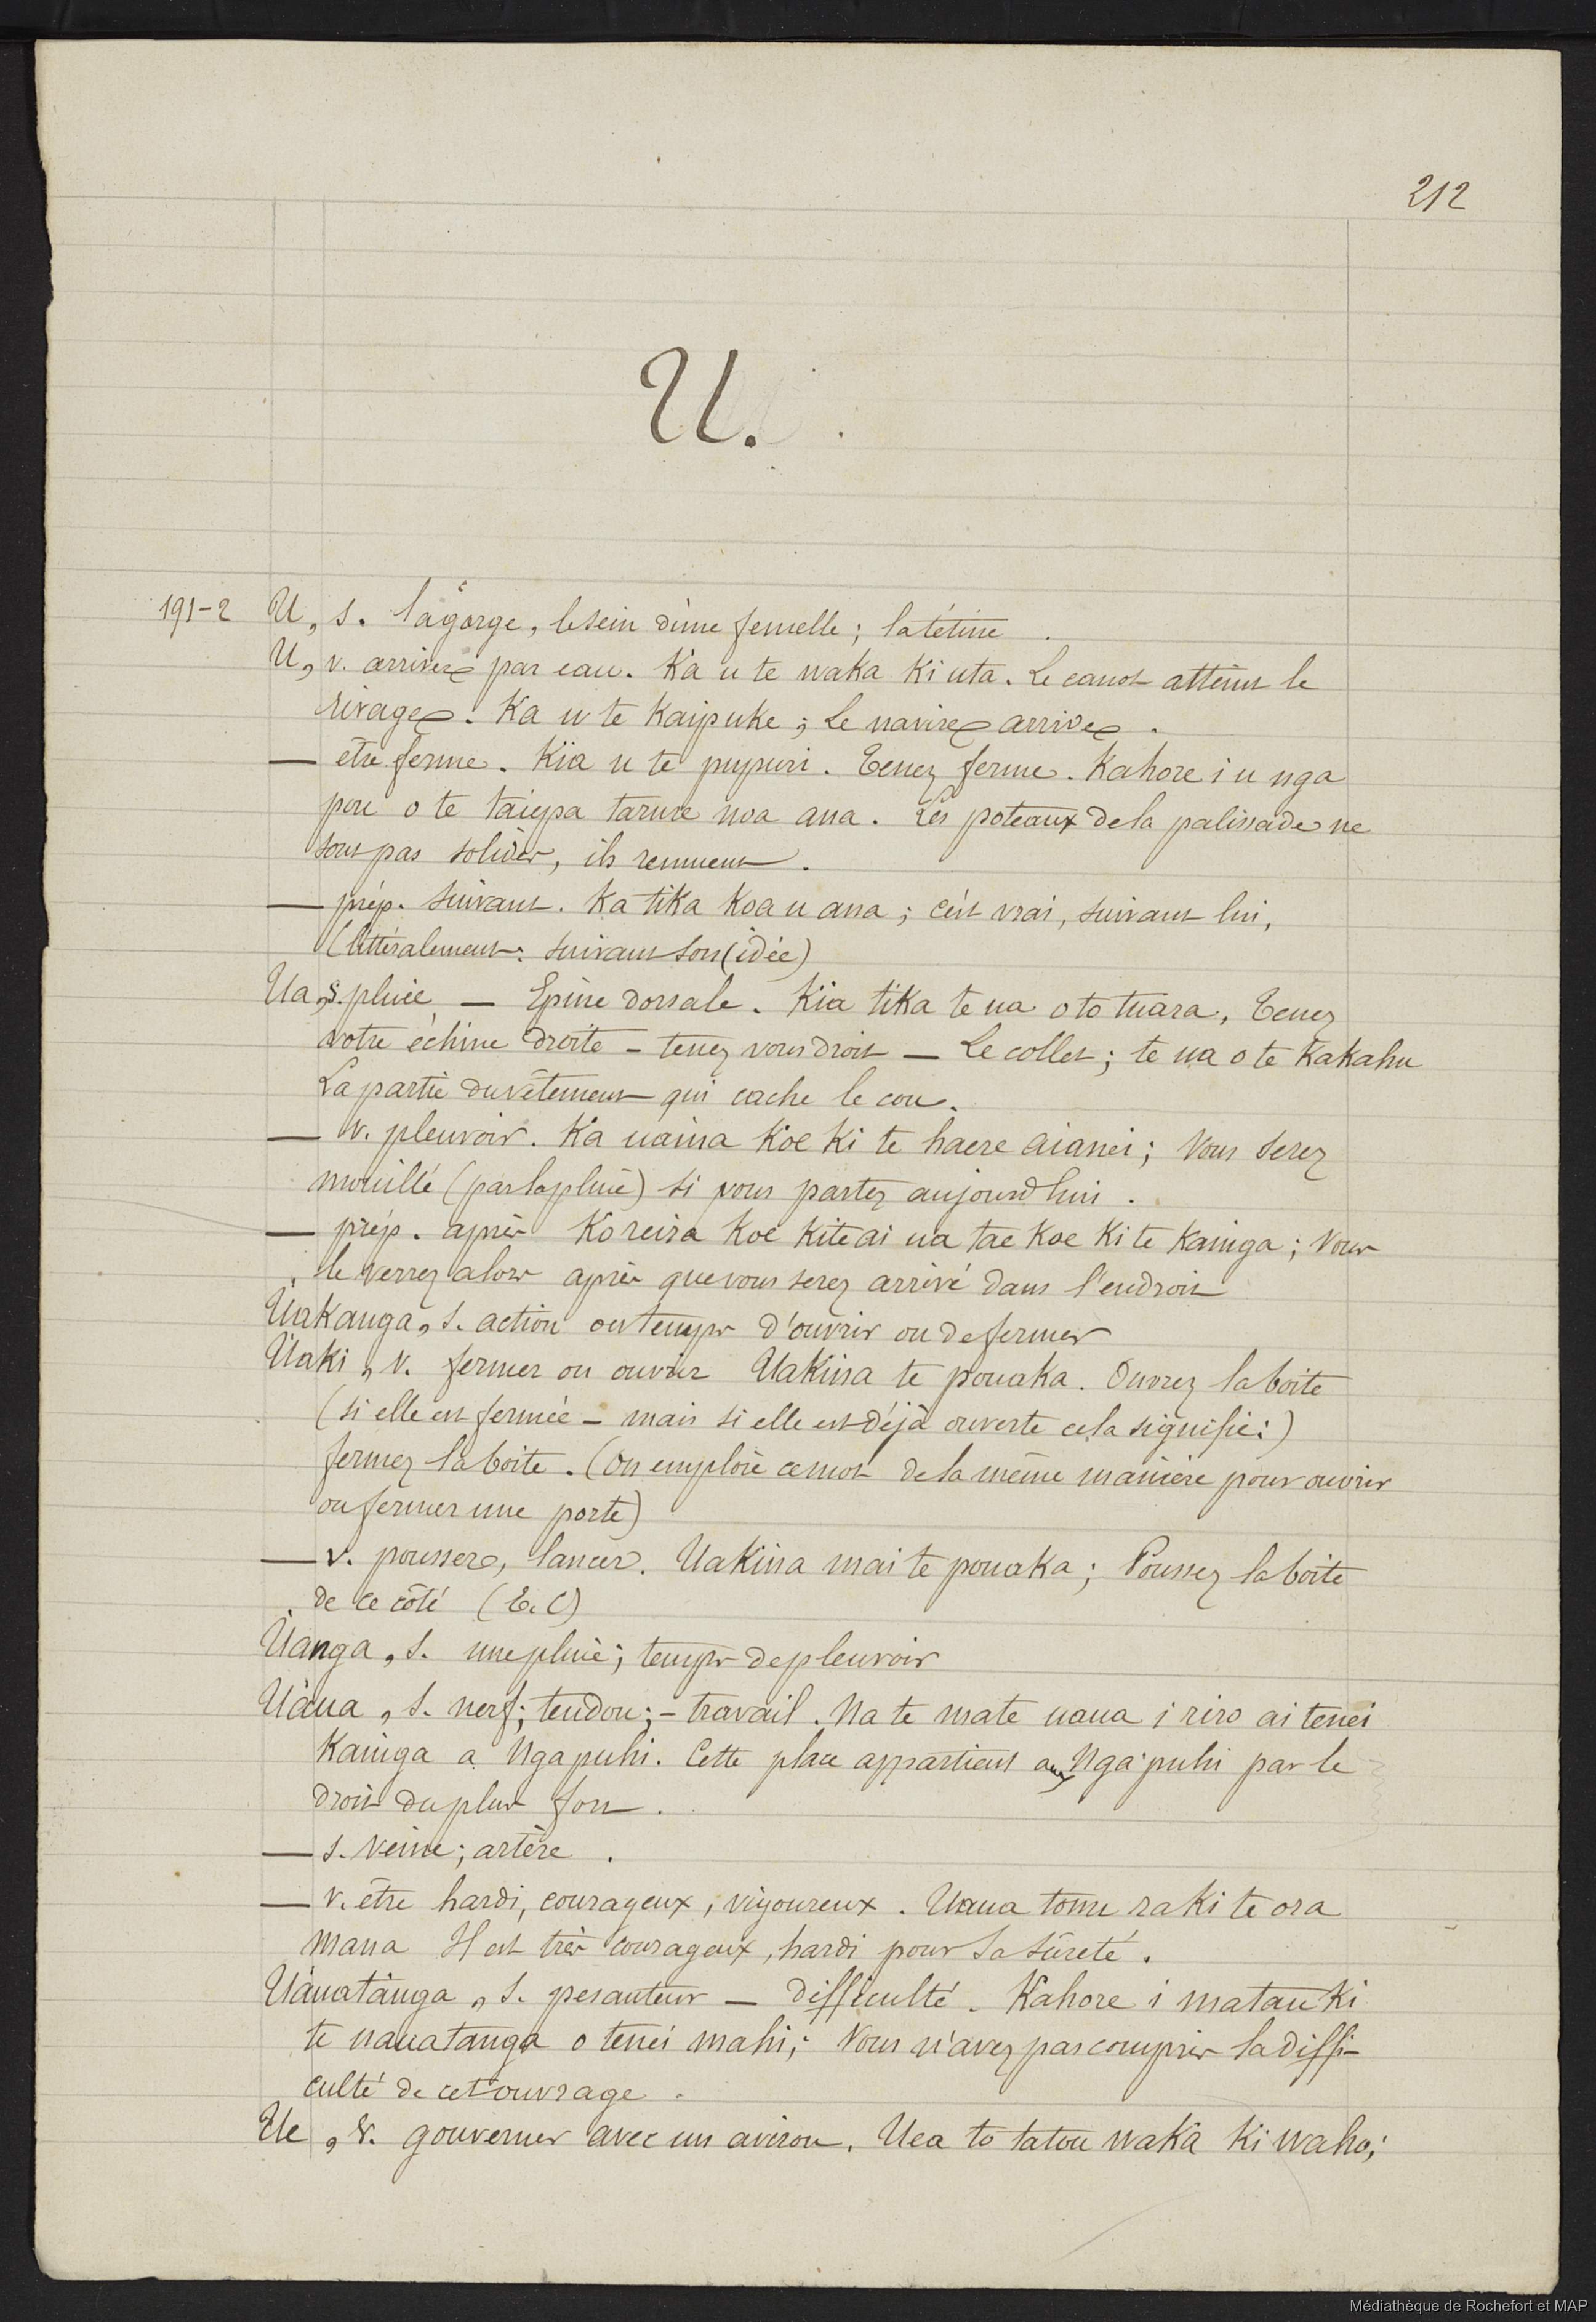 212
U.
191-2 U, s. la gorge, le sein d'une femelle; la tétine.
U, v. arriver par eau. Ka u te waka ki uta. Le canot atteint le
rivage. Ka u te kaipuke; Le navire arrive.
— être ferme. Kia u te pupuri. Tenez ferme. Kahore i u nga
pou o te taiepa tarure noa ana. Les poteaux de la palissade ne
sont pas solides, ils remuent.
— prép. suivant. Ka tika koa u ana; c'est vrai, suivant lui,
(littéralement: suivant son (idée)
Ua, s. pluie — Epine dorsale. Kia tika te ua o to tuara, Tenez
votre échine droite — tenez vous droit — Le collet; te ua o te Kakahu
La partie du vêtement qui cache le cou.
— v. pleuvoir. Ka uaina koe ki te haere aianei; Vous serez
mouillé (par la pluie) si vous partez aujourd'hui.
— prép. après Ko reira koe kite ai ua tae koe ki te kainga; Vous
le verrez alors après que vous serez arrivé dans l'endroit
Uakanga, s. action ou temps d'ouvrir ou de fermer
Uaki, v. fermer ou ouvrir Uakina te pouaka. Ouvrez la boite
(si elle est fermée — mais si elle est déjà ouverte cela signifie:)
fermez la boite. (On emploie ce mot de la même manière pour ouvrir
ou fermer une porte)
— v. pousser, lancer. Uakina mai te pouaka; Poussez la boite
de ce côté (E.C)
Uanga, s. une pluie; temps de pleuvoir
Uaua, s. nerf; tendon; — travail. Na te mate uaua i riro ai tenei
Kainga a Ngapuhi. Cette place appartient aux Nga-puhi par le
droit du plus fort.
— s. veine; artère.
— v. être hardi, courageux, vigoureux. Uaua tonu ra ki te ora
mana Il est très courageux, hardi pour sa sûreté.
Uauatanga, s. pesanteur — difficulté. Kahore i matau ki
te uauatanga o tenei mahi; Vous n'avez pas compris la diffi-
culté de cet ouvrage.
Ue, v. gouverner avec un aviron. Uea to tatou waka ki waho;
Médiathèque de Rochefort et MAP